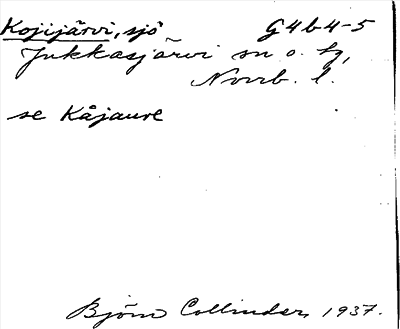 Kojijärvi, sjö G4b4-5
Jukkasjärvi sn o. tg,
Norrb. l.
se Kåjaure
Björn Collinder, 1937.